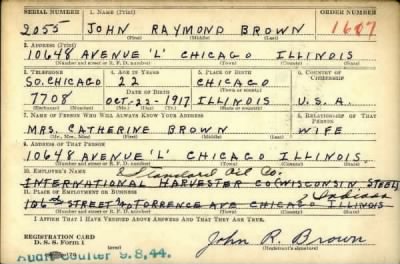 SERIAL NUMBER 1. NAME (Print) ORDER NUMBER
2055 JOHN RAYMOND BROWN 1607
(First) (Middle) (Last)
2. ADDRESS (Print)
10648 AVENUE 'L' CHICAGO ILLINOIS
(Number and street or R. F. D. number) (Town) (County) (State)
3. TELEPHONE 4. AGE IN YEARS 5. PLACE OF BIRTH 6. COUNTRY OF CITIZENSHIP
SO. CHICAGO 22 CHICAGO
(Town or county)
7708 OCT-22-1917 ILLINOIS U.S.A.
(Exchange) (Number) (Mo.) (Day) (Yr.) (State or country)
7. NAME OF PERSON WHO WILL ALWAYS KNOW YOUR ADDRESS 8. RELATIONSHIP OF THAT PERSON
MRS. CATHERINE BROWN WIFE
(Mr., Mrs., Miss) (First) (Middle) (Last)
9. ADDRESS OF THAT PERSON
10648 AVENUE 'L' CHICAGO ILLINOIS.
(Number and street or R. F. D. number) (Town) (County) (State)
10. EMPLOYER'S NAME Standard Oil Co.
INTERNATIONAL HARVESTER CO (WISCONSIN STEEL)
11. PLACE OF EMPLOYMENT OR BUSINESS Indiana
106th STREET TORRENCE AVE CHICAGO ILLINOIS
(Number and street or R. F. D. number) (Town) (County) (State)
I AFFIRM THAT I HAVE VERIFIED ABOVE ANSWERS AND THAT THEY ARE TRUE.
REGISTRATION CARD
D. S. S. Form 1
John R. Brown
9.8.44.